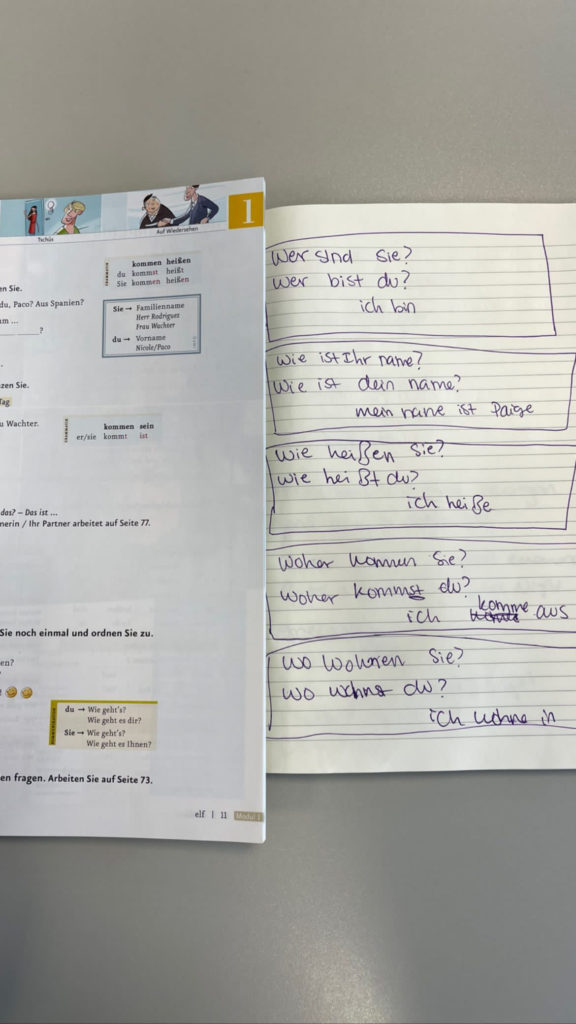 Tschüs
Auf Wiedersehen
1
en Sie.
du, Paco? Aus Spanien?
m ...
?
kommen heißen
du kommst heißt
Sie kommen heißen
Sie → Familienname
Herr Rodrigues
Frau Wachter
du → Vorname
Nicole/Paco
zen Sie.
Tag
u Wachter.
kommen sein
er/sie kommt ist
das? – Das ist ...
nerin / Ihr Partner arbeitet auf Seite 77.
Sie noch einmal und ordnen Sie zu.
en?
du → Wie geht's?
Wie geht es dir?
Sie → Wie geht's?
Wie geht es Ihnen?
en fragen. Arbeiten Sie auf Seite 73.
elf | 11 Modul 1
Wer sind Sie?
Wer bist du?
ich bin
Wie ist Ihr name?
Wie ist dein name?
mein name ist Paige
Wie heißen Sie?
Wie heißt du?
ich heiße
Woher kommen Sie?
Woher kommst du?
ich komme aus
Wo wohnen Sie?
Wo wohnst du?
ich wohne in